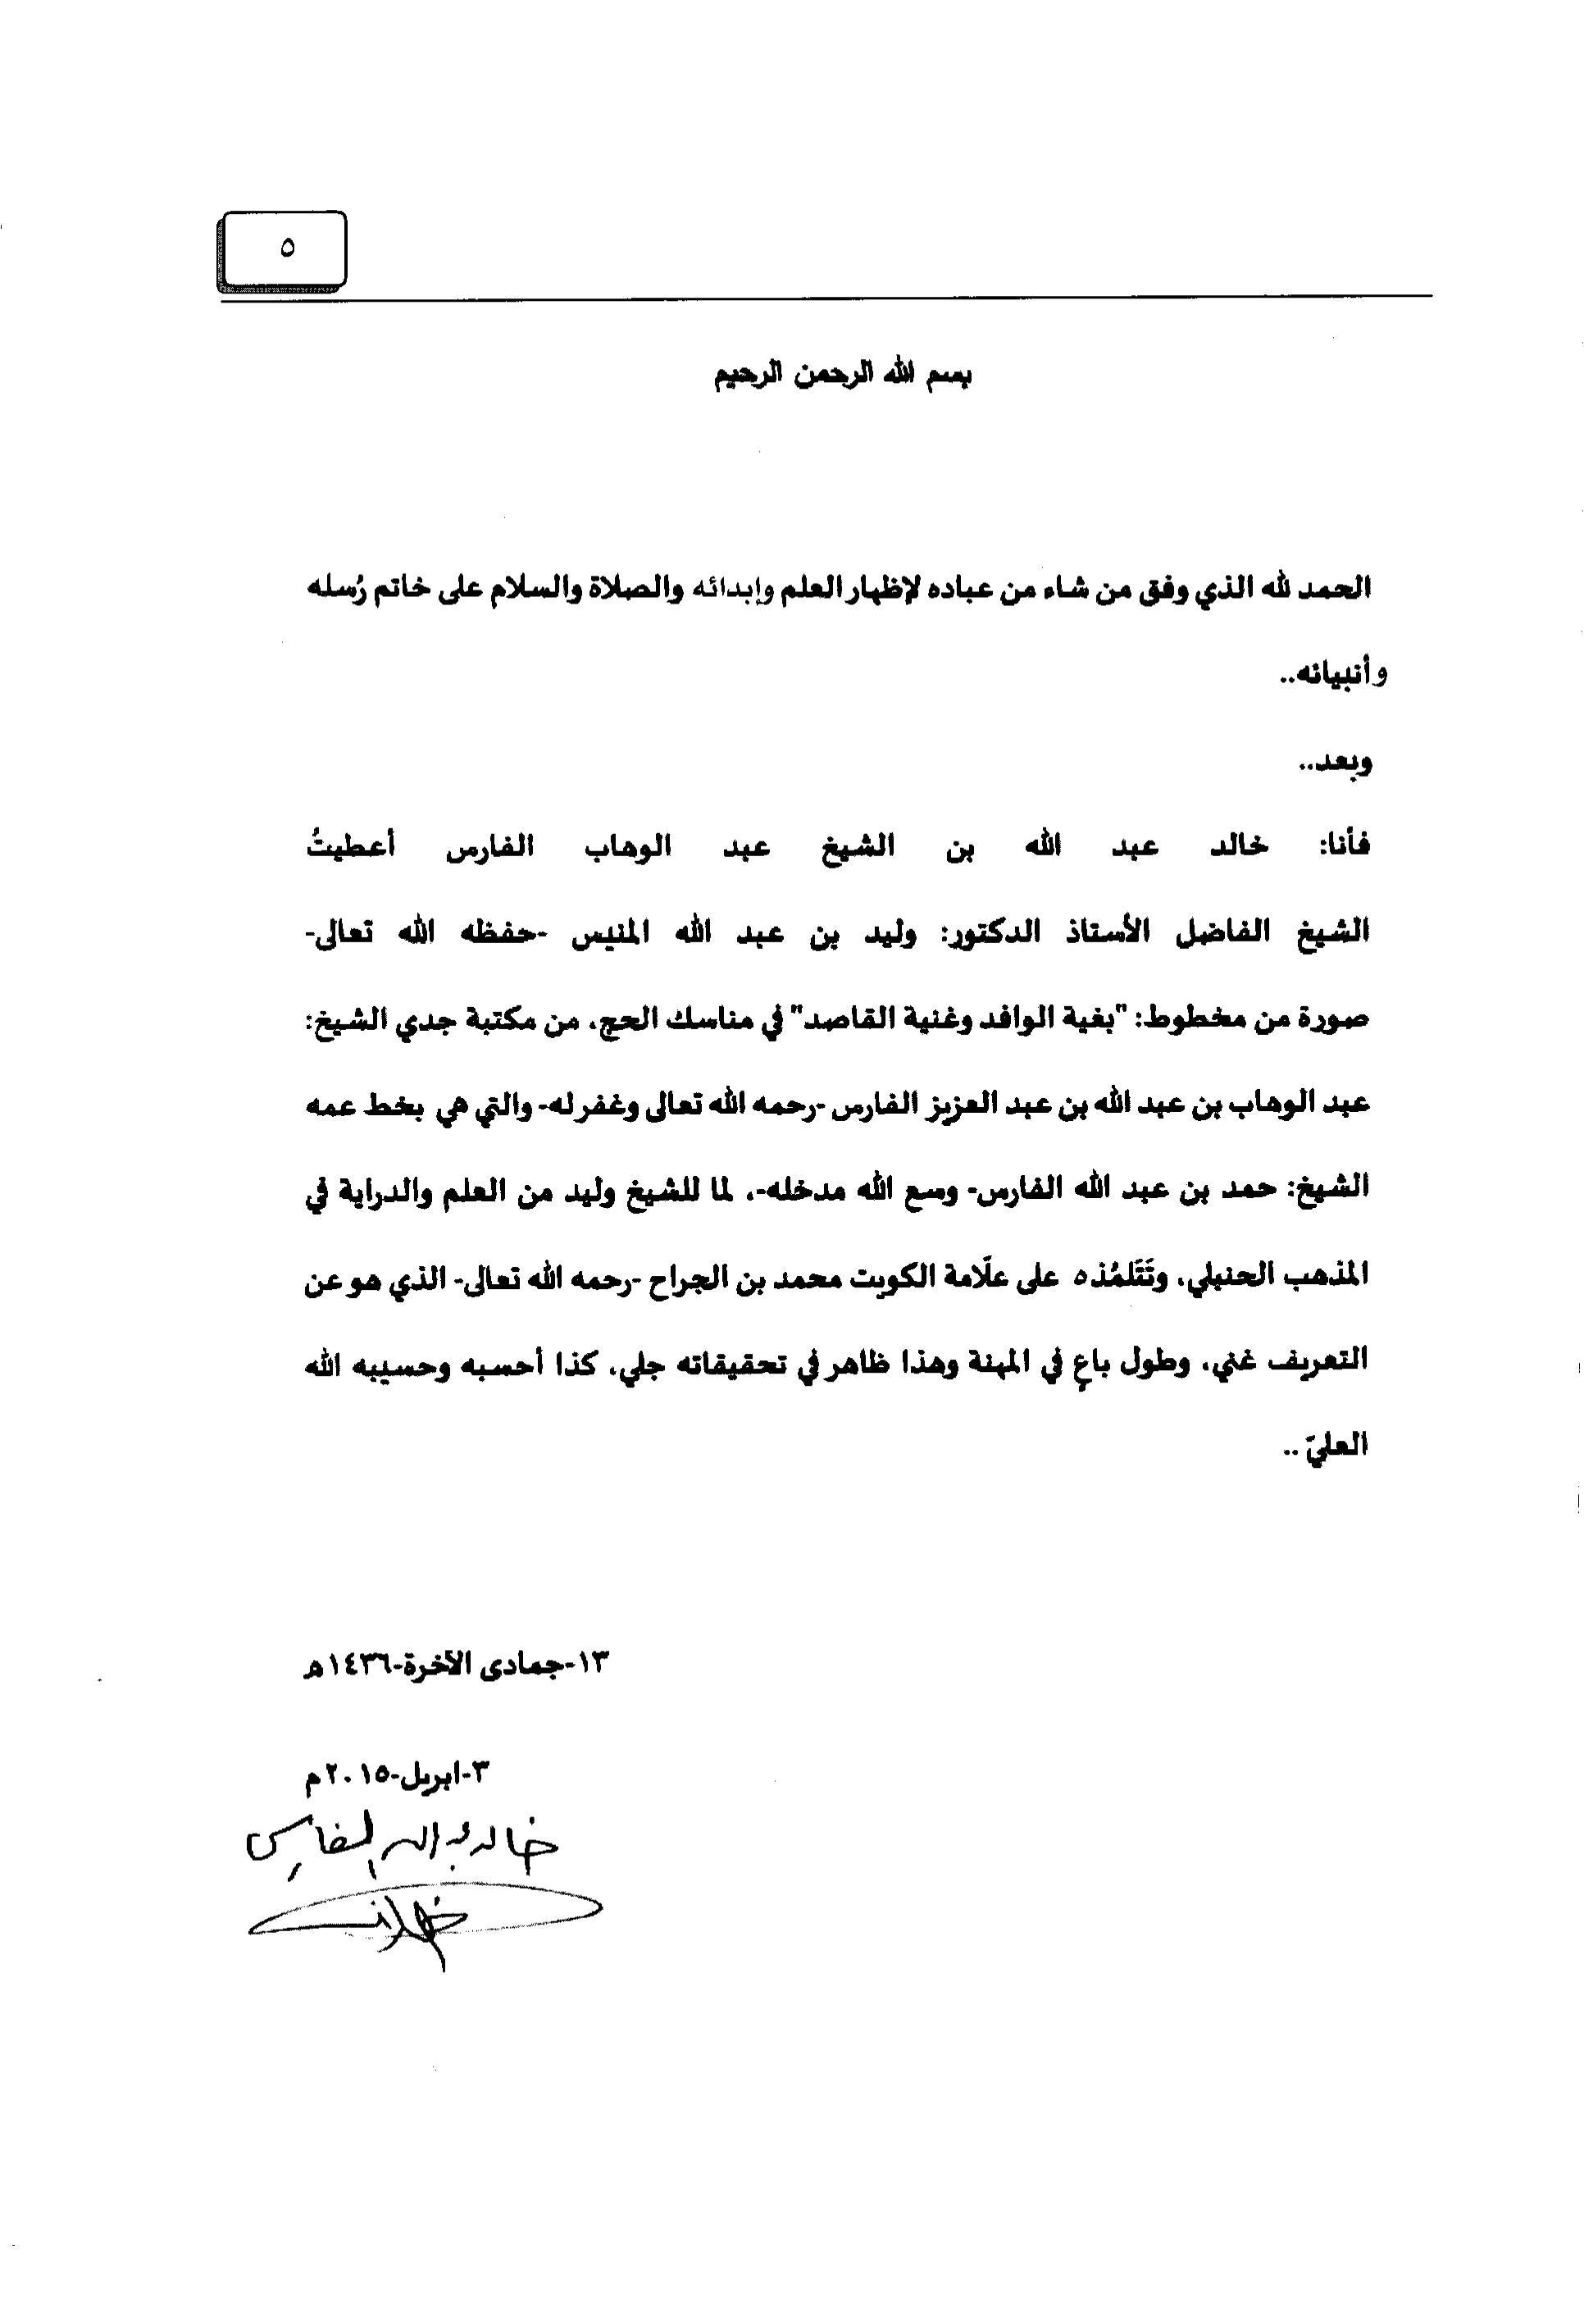 ٥
بسم الله الرحمن الرحيم
الحمد لله الذي وفق من شاء من عباده لإظهار العلم وإبدائه والصلاة والسلام على خاتم رُسله
وأنبيائه..
وبعد..
فأنا: خالد عبد الله بن الشيخ عبد الوهاب الفارس أعطيتُ
الشيخ الفاضل الأستاذ الدكتور: وليد بن عبد الله المنيس -حفظه الله تعالى-
صورة من مخطوط: "بغية الوافد وغنية القاصد" في مناسك الحج، من مكتبة جدي الشيخ:
عبد الوهاب بن عبد الله بن عبد العزيز الفارس -رحمه الله تعالى وغفر له- والتي هي بخط عمه
الشيخ: حمد بن عبد الله الفارس- وسع الله مدخله-، لما للشيخ وليد من العلم والدراية في
المذهب الحنبلي، وتَتَلمُذه على علّامة الكويت محمد بن الجراح -رحمه الله تعالى- الذي هو عن
التعريف غني، وطول باعٍ في المهنة وهذا ظاهر في تحقيقاته جلي، كذا أحسبه وحسيبه الله
العليّ ..
١٣-جمادى الآخرة-١٤٣٦ه
٣-ابريل-٢٠١٥م
خالد عبد الله الفارس